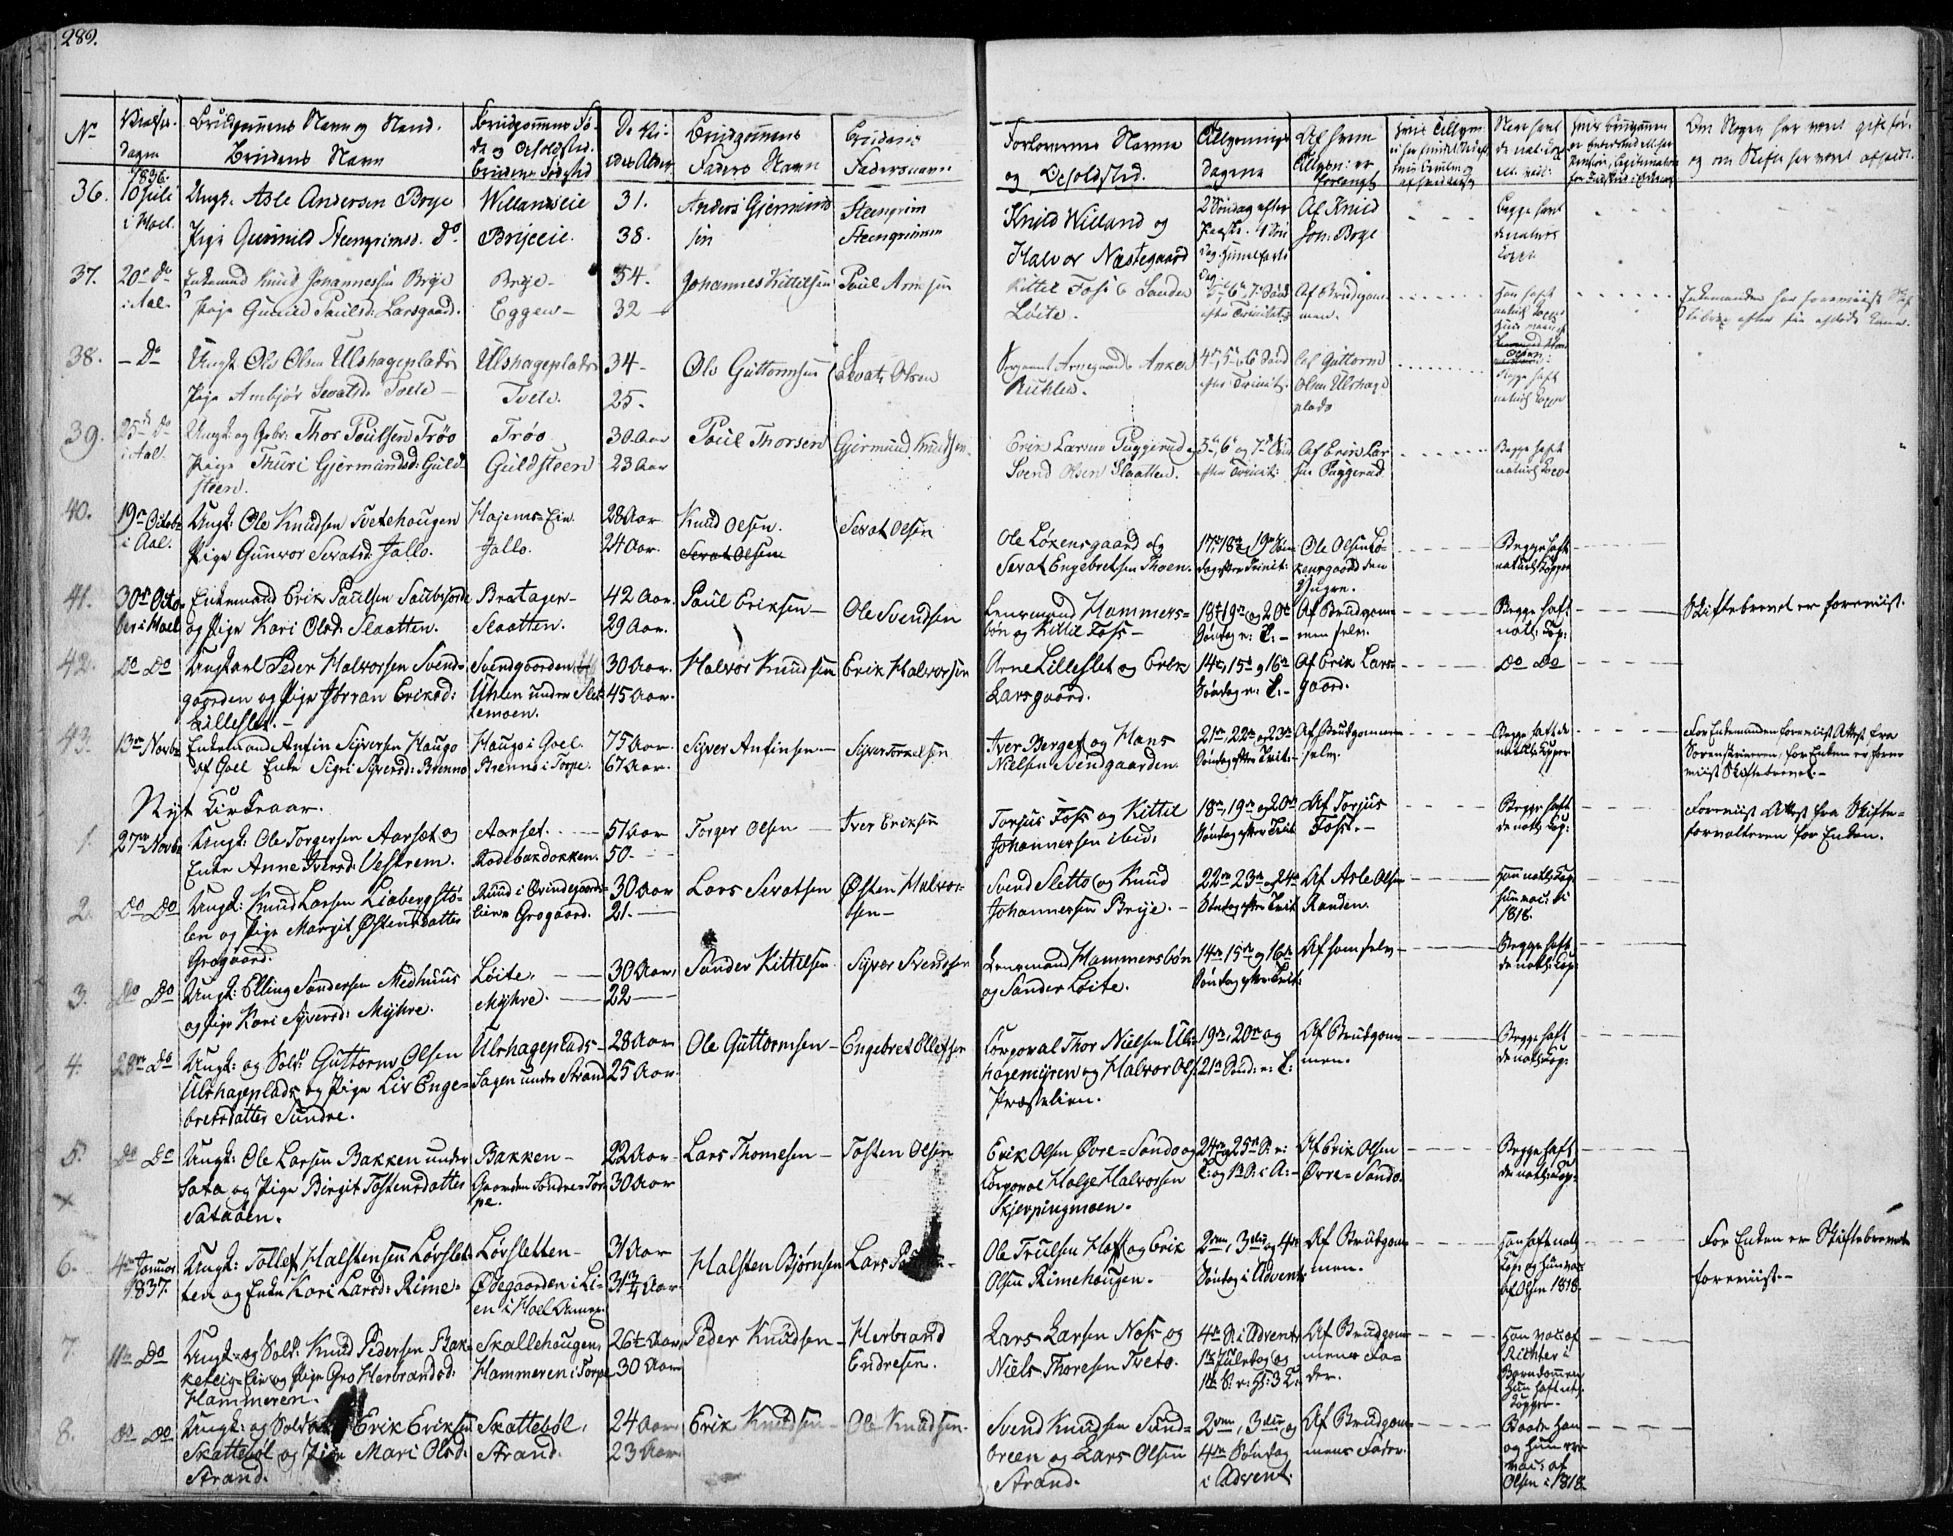 289.
No
Vielses-
dagen
Brudgommens Navn og Stand.
Brudens Navn
Brudgommens Fø-
de og Opholdsted.
Brudens Fødested
Brudgommens
Faders Navn
Brudens
Fadersnavn
Forlovernes Navne
og Opholdsted.
Tillysnings
Dagene
Af hvem
Om Nogen har været gift før,
og om Skifte har været afholdt.
1836.
36. 10 Juli
i Hoel.
Ungk. Asle Andersen Brye
Pige Gunnild Steengrimsd. Do
Willandseie
Bryeeie.
31.
38.
Anders Gjermunds
sen
Steengrim
Steengrimsen
Knud Willand og
Halvor Næstegaard
2 Søndag efter
Paaske.
Af Knud
Joh: Brye
Begge havt
37. 20de Do
i Aal.
Enkemand Knud Johannessen Brye
Pige Gunild Paulsd: Larsgaard.
Brye -
Eggen -
54.
32
Johannes Kittilsen
Paul Arnesen
Kittil Foss & Sander
Løite.
5te 6te 7de Sønd
efter Trinitatis
Af Brudgom-
men.
Enkemanden har foreviist Skif-
tebrev efter sin afdøde Kone.
38. - Do
Ungk. Ole Olsen Ulshageplads
Pige Ambjør Sevatsd. Tvete -
Ulshageplads
Tvete.
34 -
25.
Ole Guttormsen
Sevat Olsen
4de, 5te & 6te Sønd
efter Trinit:
Af Guttorm
Olsen Ulshage
plads
39. 25de Do
i Aal.
Ungk: og Gebr. Thor Poulsen Trøo
Pige Thuri Gjermundsd: Guld-
steen.
Trøo
Guldsteen
30 Aar
23 Aar
Paul Thorsen
Gjermund Knudsen.
Erik Larsen Puggerud og
Svend Olsen Slaatten.
5te, 6te og 7de Sønd
efter Trinit:
Af Erik Lar-
sen Puggerud
Begge havt
naturl: Kopper
40. 19de Octobr
i Aal.
Ungk: Ole Knudsen Tvetehougen
Pige Gunvor Sevatsd: Jallo.
Hojems-Eie
Jallo.
28 Aar
24 Aar.
Knud Olsen.
Sevat Olsen
Sevat Olsen
Ole Løkensgaard og
Sevat Engebretsen Thoen.
17de, 18de & 19de Søn-
dag efter Trinit:
Ole Olsen Lø-
kensgaard den
Yngre.
Begge haft
naturl: Kopper
41. 30te Octo-
ber i Hoel
Enkemand Erik Paulsen
og Pige Kari Olsd: Slaatten.
Bratagen -
Slaatten.
42 Aar.
29 Aar.
Paul Eriksen -
Ole Svendsen
Lensmand Hammers-
bøn og Kittil Foss -
18de, 19de og 20de
Søndag e: T. -
Af Brudgom-
men selv.
Begge haft
natl: Kop:
Skiftebrevet er foreviist.
42. Do Do
Ungkarl Peder Halvorsen Svend-
gaarden og Pige Jørran Eriksd:
Lilleslet. -
Svendgaarden
Uhlen under Slet-
temoen.
30 Aar.
45 Aar.
Halvor Knudsen
Erik Halvorsen
Arne Lilleslet og Erik
Larsgaard.
14de, 15de og 16de
Søndag e: T. -
Af Erik Lars-
gaard.
Do Do
43. 13de Novbr
Enkemand Anfin Syversen Haugo
af Goel Enke Sigri Syversd: Brenno
Haugo i Goel.
Brenno i Torpe.
75 Aar.
67 Aar.
Syver Anfinsen -
Syver Torkelsen
Iver Berget og Hans
Nielsen Svendgaarden
21de, 22de og 23de
Søndag efter Trit: -
Af Brudgommen
selv.
Begge haft de
natl: Kopper
For Enkemanden foreviist Attest fra
Sorenskriveren, for Enken er fore-
viist Skiftebrevet. -
Nyt Kirkeaar.
1. 27de Novbr
Ungk: Ole Torgersen Aarset og
Enke Anne Iversd: Vestrem.
Aarset.
Rodebakdokken.
51 Aar
50.
Torger Olsen -
Iver Eriksen
Torjus Foss og Kittil
Johannessen ibid.
18de, 19de og 20de
Søndag efter Trit
Af Torjus
Foss. -
Begge haft
de natl: Kop:
Foreviist Attest fra Skifte-
forvalteren for Enken.
2. Do Do
Ungk: Knud Larsen Liabergstø-
len og Pige Margit Østensdatter
Grogaard.
Ruud i Qvindegaards-
lien Grogaard.
30 Aar
21.
Lars Sevatsen
Østen Halvor-
sen -
Svend Sletto og Knud
Johannessen Brye. -
22de 23de og 24de
Søndag efter Trit
Af Asle Olsen
Randen.
Han natl: Kop:
hun vac: i
1818.
3. Do Do
Ungk: Elling Sandersen Medhuus
og Pige Kari Syversd: Myhre.
Løite.
Myhre.
30 Aar.
22
Sander Kittilsen
Syver Svendsen
Lensmand Hammersbøn
og Sander Løite.
14de 15de og 16de
Søndag efter Trit:
Af ham selv -
Begge haft
de natl: Kop:
4. 28de Do
Ungk: og Sold: Guttorm Olsen
Ulshageplads og Pige Liv Enge-
bretsdatter Sundre.
Ulshageplads -
Sagen under Strand
28 Aar
25 Aar.
Ole Guttormsen -
Engebret Ellefsen
Corporal Thor Nielsen Uls-
hagemyren og Halvor Ols:
Præstelien.
19de, 20de og
21de Sønd: e: T:
Af Brudgom-
men.
Begge haft
de natl: Kop:
5. Do Do
Ungk: Ole Larsen Bakken under
Sata og Pige Birgit Tostensdatter
Sataøen.
Bakken -
Gaarden Søndre-Tor-
pe.
22 Aar
30 Aar
Lars Thomesen -
Tosten Olsen
Erik Olsen Øvre-Sando og
Corporal Helge Halvorsen
Skjerpingmoen.
24de og 25de S: e:
T: og 1ste S: i A: -
Af Erik Olsen
Øvre-Sando.
Begge haft
de natl: Kop:
6. 4de Januar
1837.
Ungk: Tollef Halstensen Lørslet-
ten og Enke Kari Larsd: Rime-
Lørsletten -
Ødegaarden i Li-
en i Hoel Annex.
31 Aar
31¾ Aar.
Halsten Bjørnsen
Lars
Ole Trulsen Hoff og Erik
Olsen Rimehougen.
2den, 3die og 4de
Søndag i Advent.
Af Brudgom-
men.
Han haft natl:
Kop: og hun vac:
af Olsen 1818.
For Enken er Skiftebrevet
foreviist. -
7. 11te Do
Ungk: og Sold: Knud Pedersen Bak-
keteig-Eie og Pige Gro Herbrandsd:
Hammeren.
Skallehougen,
Hammeren i Torpe
26½ Aar.
30 Aar
Peder Knudsen -
Herbrand
Endresen.
Lars Larsen Noss og
Niels Thoresen Tveto.
4de S: i Advent
1ste Juledag og
1ste S: e: H: 3 K:
Af Brudgom-
mens Fa-
der.
Han vac: af
Richter i
Barndommen
Hun haft nat:
Kopper -
8. Do Do
Ungk: og Soldat Erik Eriksen
Skattebøl og Pige Mari Olsd:
Strand.
Skattebøl,
Strand.
24 Aar
23 Aar.
Erik Knudsen -
Ole Knudsen.
Svend Knudsen Sund-
breen og Lars Olsen
Strand.
2den, 3die og
4de Søndag
i Advent.
Af Brudgom-
mens Fader.
Baade Han
og Hun ere
vac: af
Olsen i 1818.